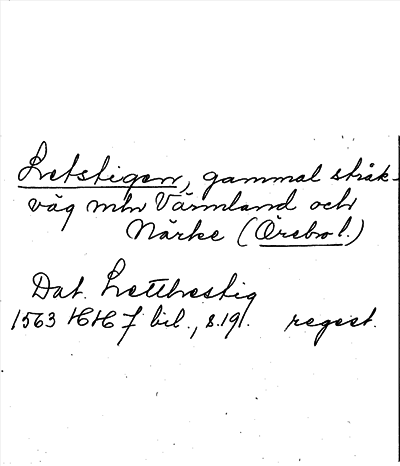 Letstigen, gammal stråk-
väg mln Värmland och
Närke (Örebro l.)
Dat. Letthestig
1563 HH 7 bil., s. 191. regest.